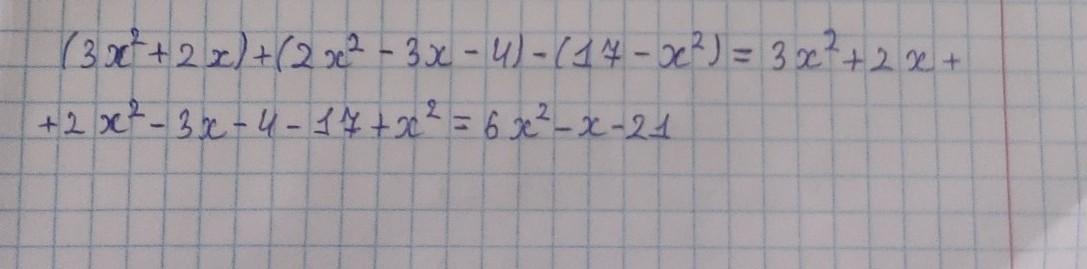 (3x²+2x)+(2x²-3x-4)-(17-x²)=3x²+2x+
+2x²-3x-4-17+x²=6x²-x-21